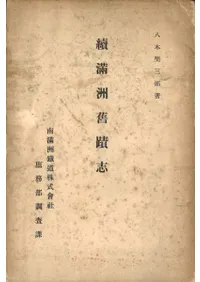 八木奘三郎著
續滿洲舊蹟志
南滿洲鐵道株式會社
庶務部調査課